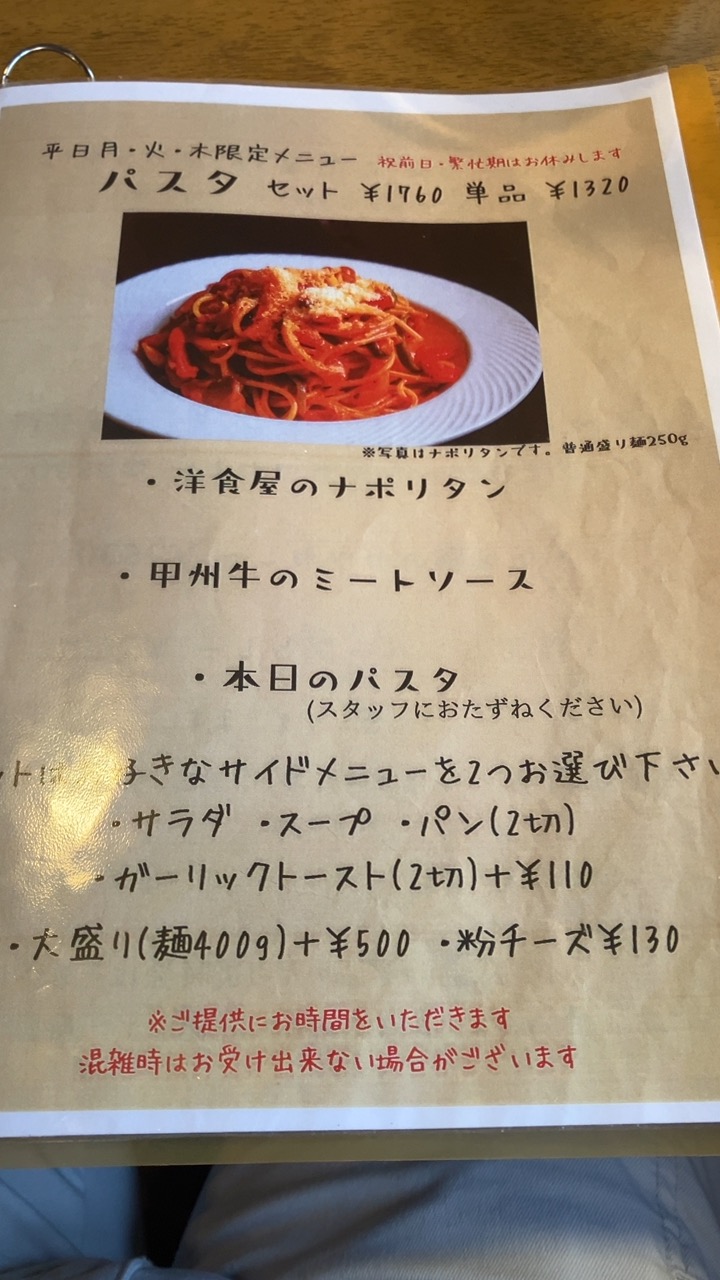 平日月・火・木限定メニュー 祝前日・繁忙期はお休みします
パスタ セット ¥1760 単品 ¥1320
※写真はナポリタンです。普通盛り麺250g
・洋食屋のナポリタン
・甲州牛のミートソース
・本日のパスタ
(スタッフにおたずねください)
ットは きなサイドメニューを2つお選び下さい
・サラダ ・スープ ・パン(2切)
・ガーリックトースト(2切)+¥110
・大盛り(麺400g)+¥500 ・粉チーズ¥130
※ご提供にお時間をいただきます
混雑時はお受け出来ない場合がございます